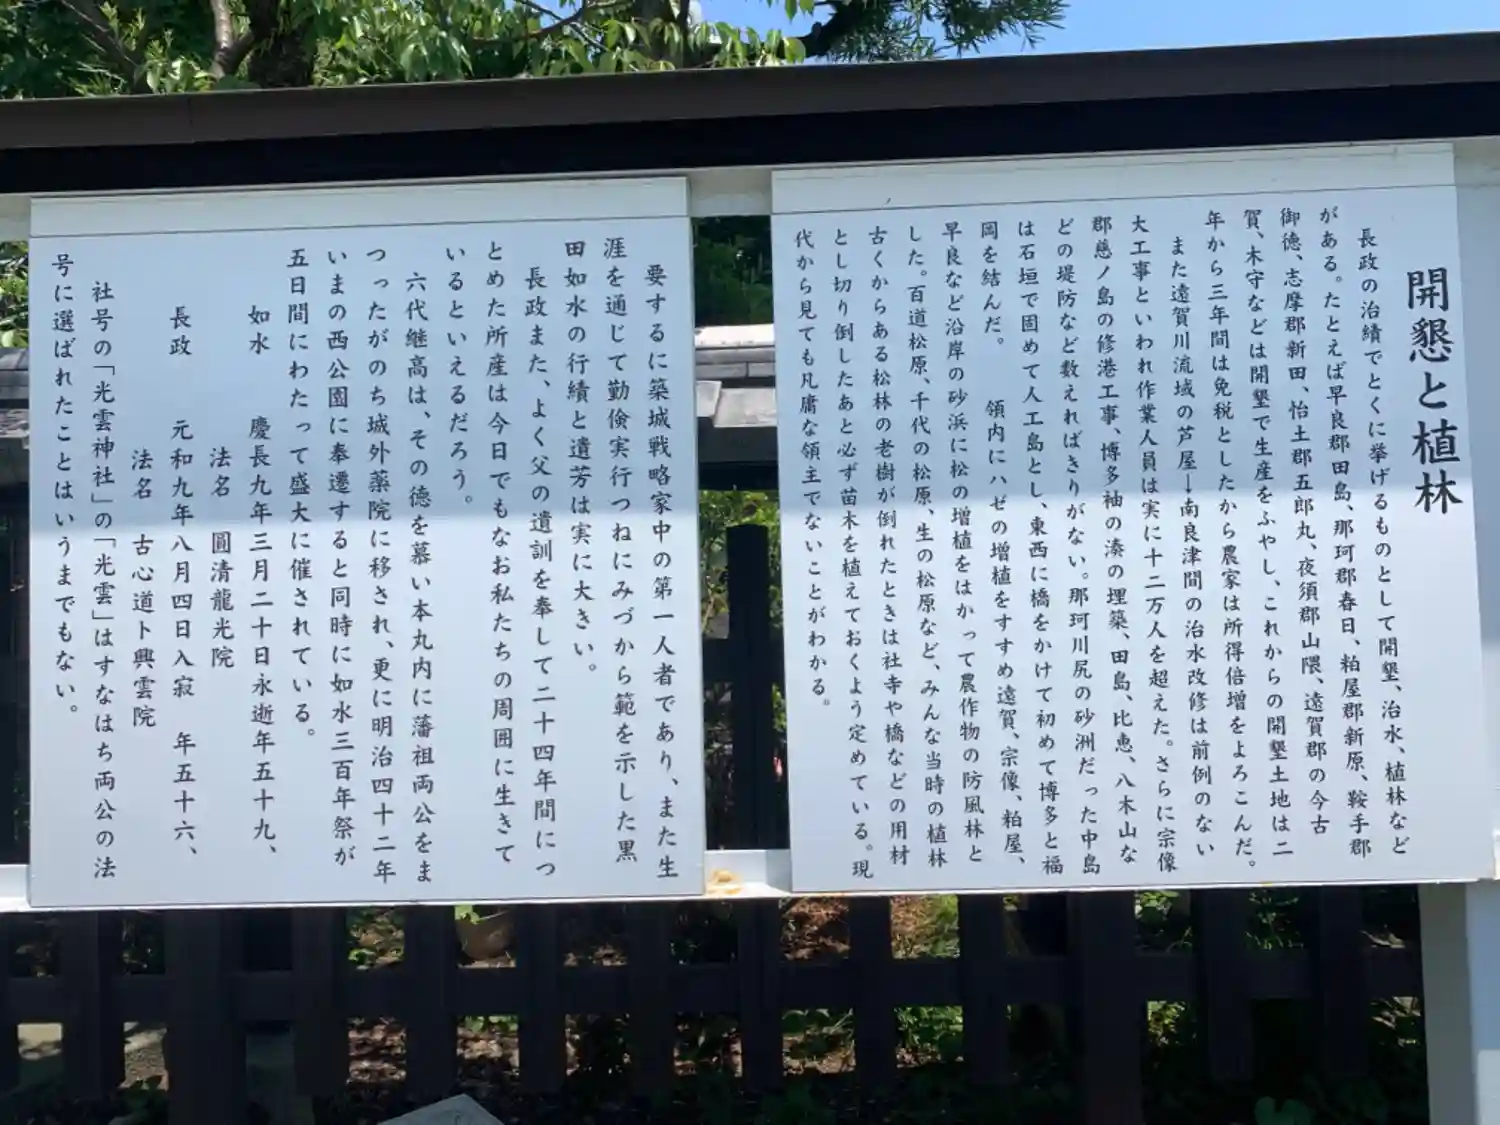 開懇と植林
長政の治績でとくに挙げるものとして開墾、治水、植林など
がある。たとえば早良郡田島、那珂郡春日、粕屋郡新原、鞍手郡
御徳、志摩郡新田、怡土郡五郎丸、夜須郡山隈、遠賀郡の今古
賀、木守などは開墾で生産をふやし、これからの開墾土地は二
年から三年間は免税としたから農家は所得倍増をよろこんだ。
また遠賀川流域の芦屋ー南良津間の治水改修は前例のない
大工事といわれ作業人員は実に十二万人を超えた。さらに宗像
郡慈ノ島の修港工事、博多袖の湊の埋築、田島、比恵、八木山な
どの堤防など数えればきりがない。那珂川尻の砂洲だった中島
は石垣で固めて人工島とし、東西に橋をかけて初めて博多と福
岡を結んだ。　領内にハゼの増植をすすめ遠賀、宗像、粕屋、
早良など沿岸の砂浜に松の増植をはかって農作物の防風林と
した。百道松原、千代の松原、生の松原など、みんな当時の植林
古くからある松林の老樹が倒れたときは社寺や橋などの用材
とし切り倒したあと必ず苗木を植えておくよう定めている。現
代から見ても凡庸な領主でないことがわかる。
要するに築城戦略家中の第一人者であり、また生
涯を通じて勤倹実行つねにみづから範を示した黒
田如水の行績と遺芳は実に大きい。
長政また、よく父の遺訓を奉して二十四年間につ
とめた所産は今日でもなお私たちの周囲に生きて
いるといえるだろう。
六代継高は、その徳を慕い本丸内に藩祖両公をま
つったがのち城外薬院に移され、更に明治四十二年
いまの西公園に奉遷すると同時に如水三百年祭が
五日間にわたって盛大に催されている。
如水　慶長九年三月二十日永逝年五十九、
法名　圓清龍光院
長政　元和九年八月四日入寂　年五十六、
法名　古心道卜興雲院
社号の「光雲神社」の「光雲」はすなはち両公の法
号に選ばれたことはいうまでもない。